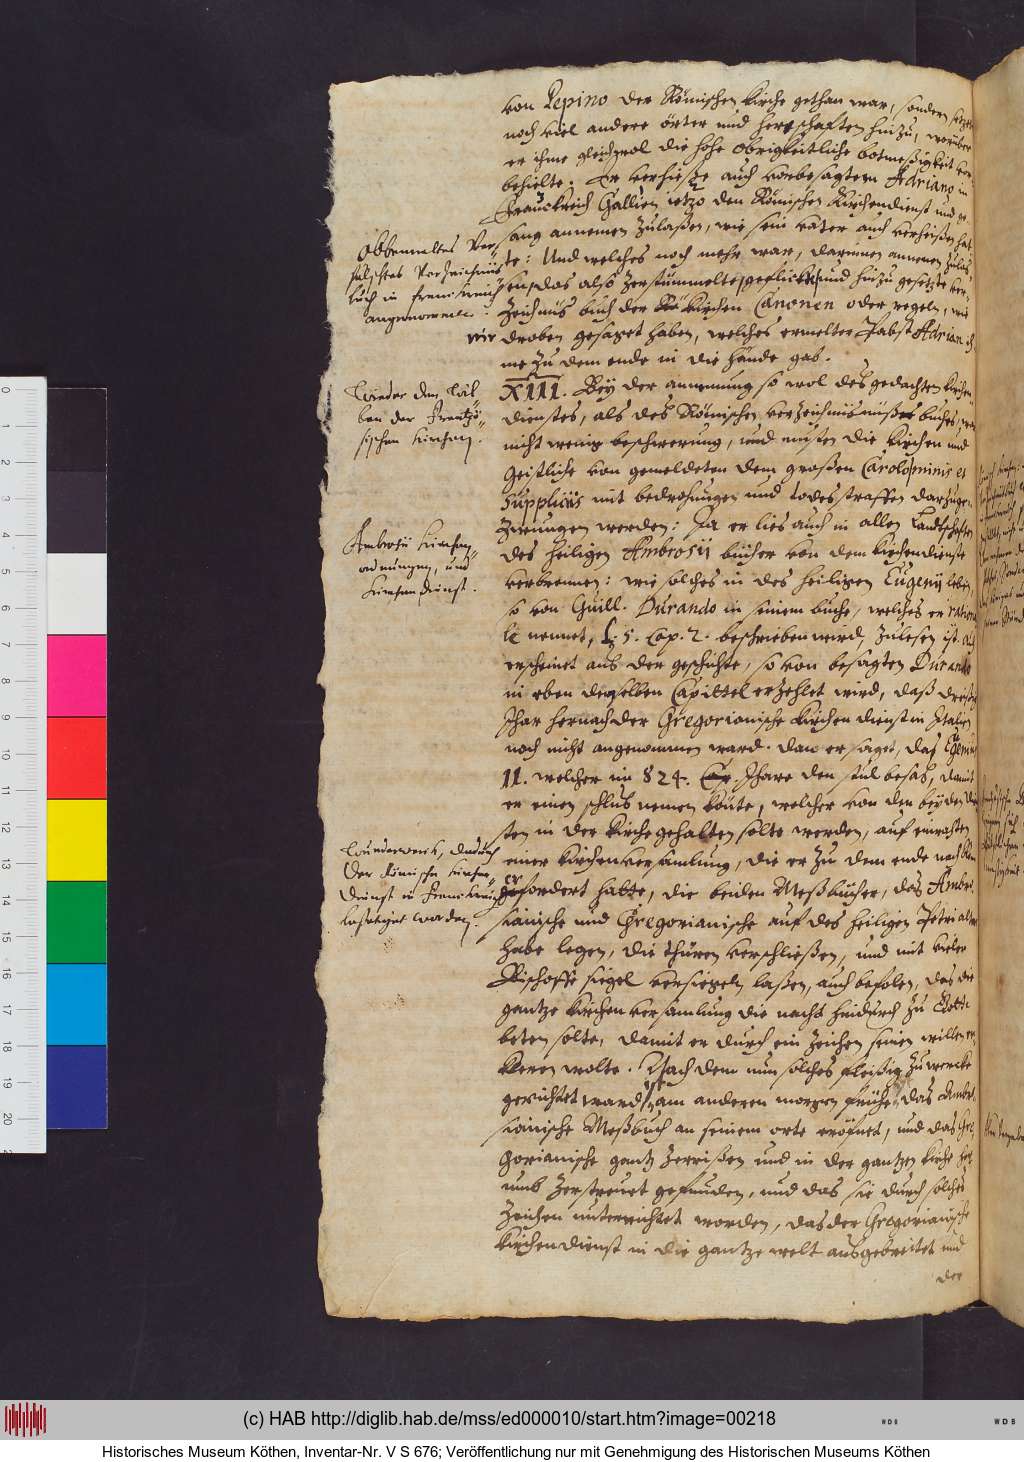 von Pepino der Römischen kirche gethan war, sondern setzte
noch viel andere örter und herrschaften hinzu, worüber
er ihme gleichwol die hohe obrigkeitliche botmeßigkeit vor-
behielte. Er verhieße auch vorbesagtem Adriano in
Franckreich Gallien ietzo den Römischen Kirchendienst und ge-
sang annemen zulaßen, wie sein vater auch verheißen hat-
te: Und welches noch mehr war, darinnen annemen zulas-
sen, das also zerstümmelte, geflickte und hinzu gesetzte ver-
zeichnüs buch der kirchen Canonen oder regeln, wie
wir droben gesaget haben, welches ermelter Pabst Adrian ih-
me zu dem ende in die hände gab.
Obbemeltes Ver-
fälschtes Verzeichnüs
buch in Franckreich
angenommen.
XIII. Bey der annemung so wol des gedachten kirchen-
dienstes, als des Römischen verzeichnüs buches, war
nicht wenig beschwerung, und musten die kirchen und
Geistliche von gemeldeten dem großen Carolo, minis et
suppliciis mit bedrohungen und todesstraffen darzuge-
zwungen werden: Ja er lies auch in allen Landschaften
des heiligen Ambrosij bücher von dem kirchendienste
verbrennen: wie solches in des heiligen Eugenij leben,
so von Guill. Durando in seinem buche, welches er rationa-
le nennet, l. 5. Cap. 2. beschrieben wird, zulesen ist. Es
erscheinet aus der geschichte, so von besagten Durando
in eben demselben Capittel erzehlet wird, daß dreißig
Jhar hernach der Gregorianische kirchendienst in Italien
noch nicht angenommen ward. dan er saget, das Eugenius
II. welcher im 824. Jhare den stul besas, damit
er einen schlus nemen könte, welcher von den beyden dien-
sten in der kirche gehalten solte werden, auf einrahten
einer kirchenversamlung, die er zu dem ende nach Rom
erfordert hatte, die beiden Meßbücher, das Ambro-
sianische und Gregorianische auf des heiligen Petri altar
habe legen, die thüren verschließen, und mit vieler
Bischoffe siegel versiegeln laßen, auch befolen, das die
gantze kirchenversamlung die nacht hindurch zu Gott
beten solte, damit er durch ein zeichen seinen willen er-
kleren wolte. Nach dem nun solches fleißig zu wercke
gerichtet ward, ist am anderen morgen frühe das Ambro-
sianische Meßbuch an seinem orte eröfnet, und das Gre-
gorianische gantz zerrißen und in der gantzen kirche her-
umb zerstreuet gefunden, und das sie durch solches
zeichen unterrichtet worden, das der Gregorianische
kirchendienst in die gantze welt ausgebreitet und
der
Wieder den Wil-
len der Frantzö-
sischen kirchen.
Ambrosii kirchen-
ordnungen, und
kirchendienst.
Wunderwerck, dadurch
der Römische kirchen-
dienst in Franckreich
bestetiget worden.
(c) HAB http://diglib.hab.de/mss/ed000010/start.htm?image=00218
WDB
WDB
Historisches Museum Köthen, Inventar-Nr. V S 676; Veröffentlichung nur mit Genehmigung des Historischen Museums Köthen
0
1
2
3
4
5
6
7
8
9
10
11
12
13
14
15
16
17
18
19
20